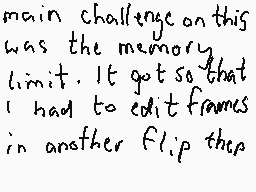 main challenge on this
was the memory
limit. It got so that
I had to edit frames
in another flip then